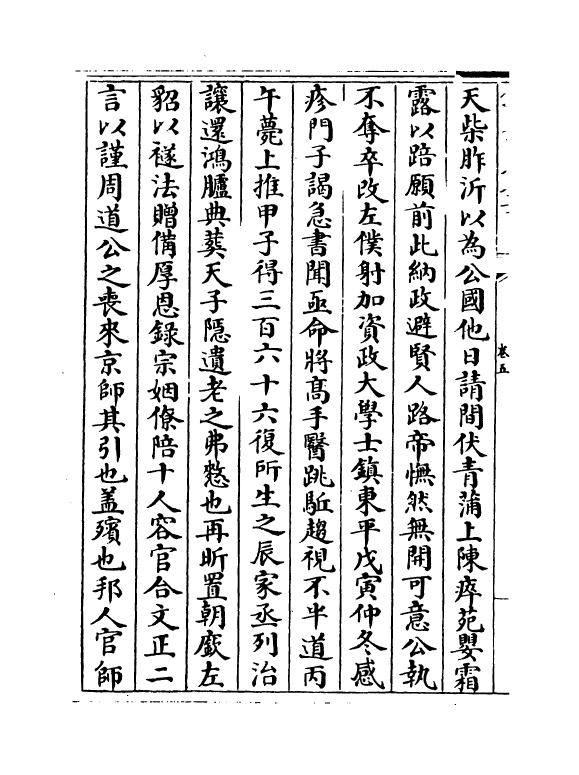 天柴胙沂以為公國他日請間伏青蒲上陳瘁苑嬰霜
露以踣願前此納政避賢人路帝憮然無開可意公執
不奪卒改左僕射加資政大學士鎮東平戊寅仲冬感
疹門子謁急書聞亟命將髙手醫跳駈趨視不半道丙
午薨上推甲子得三百六十六復所生之辰家丞列治
讓還鴻臚典葬天子隱遺老之弗憖也再昕置朝廞左
貂以禭法贈備厚恩錄宗姻僚陪十人容官合文正二
言以謹周道公之喪來京師其引也盖殯也邦人官師
卷五